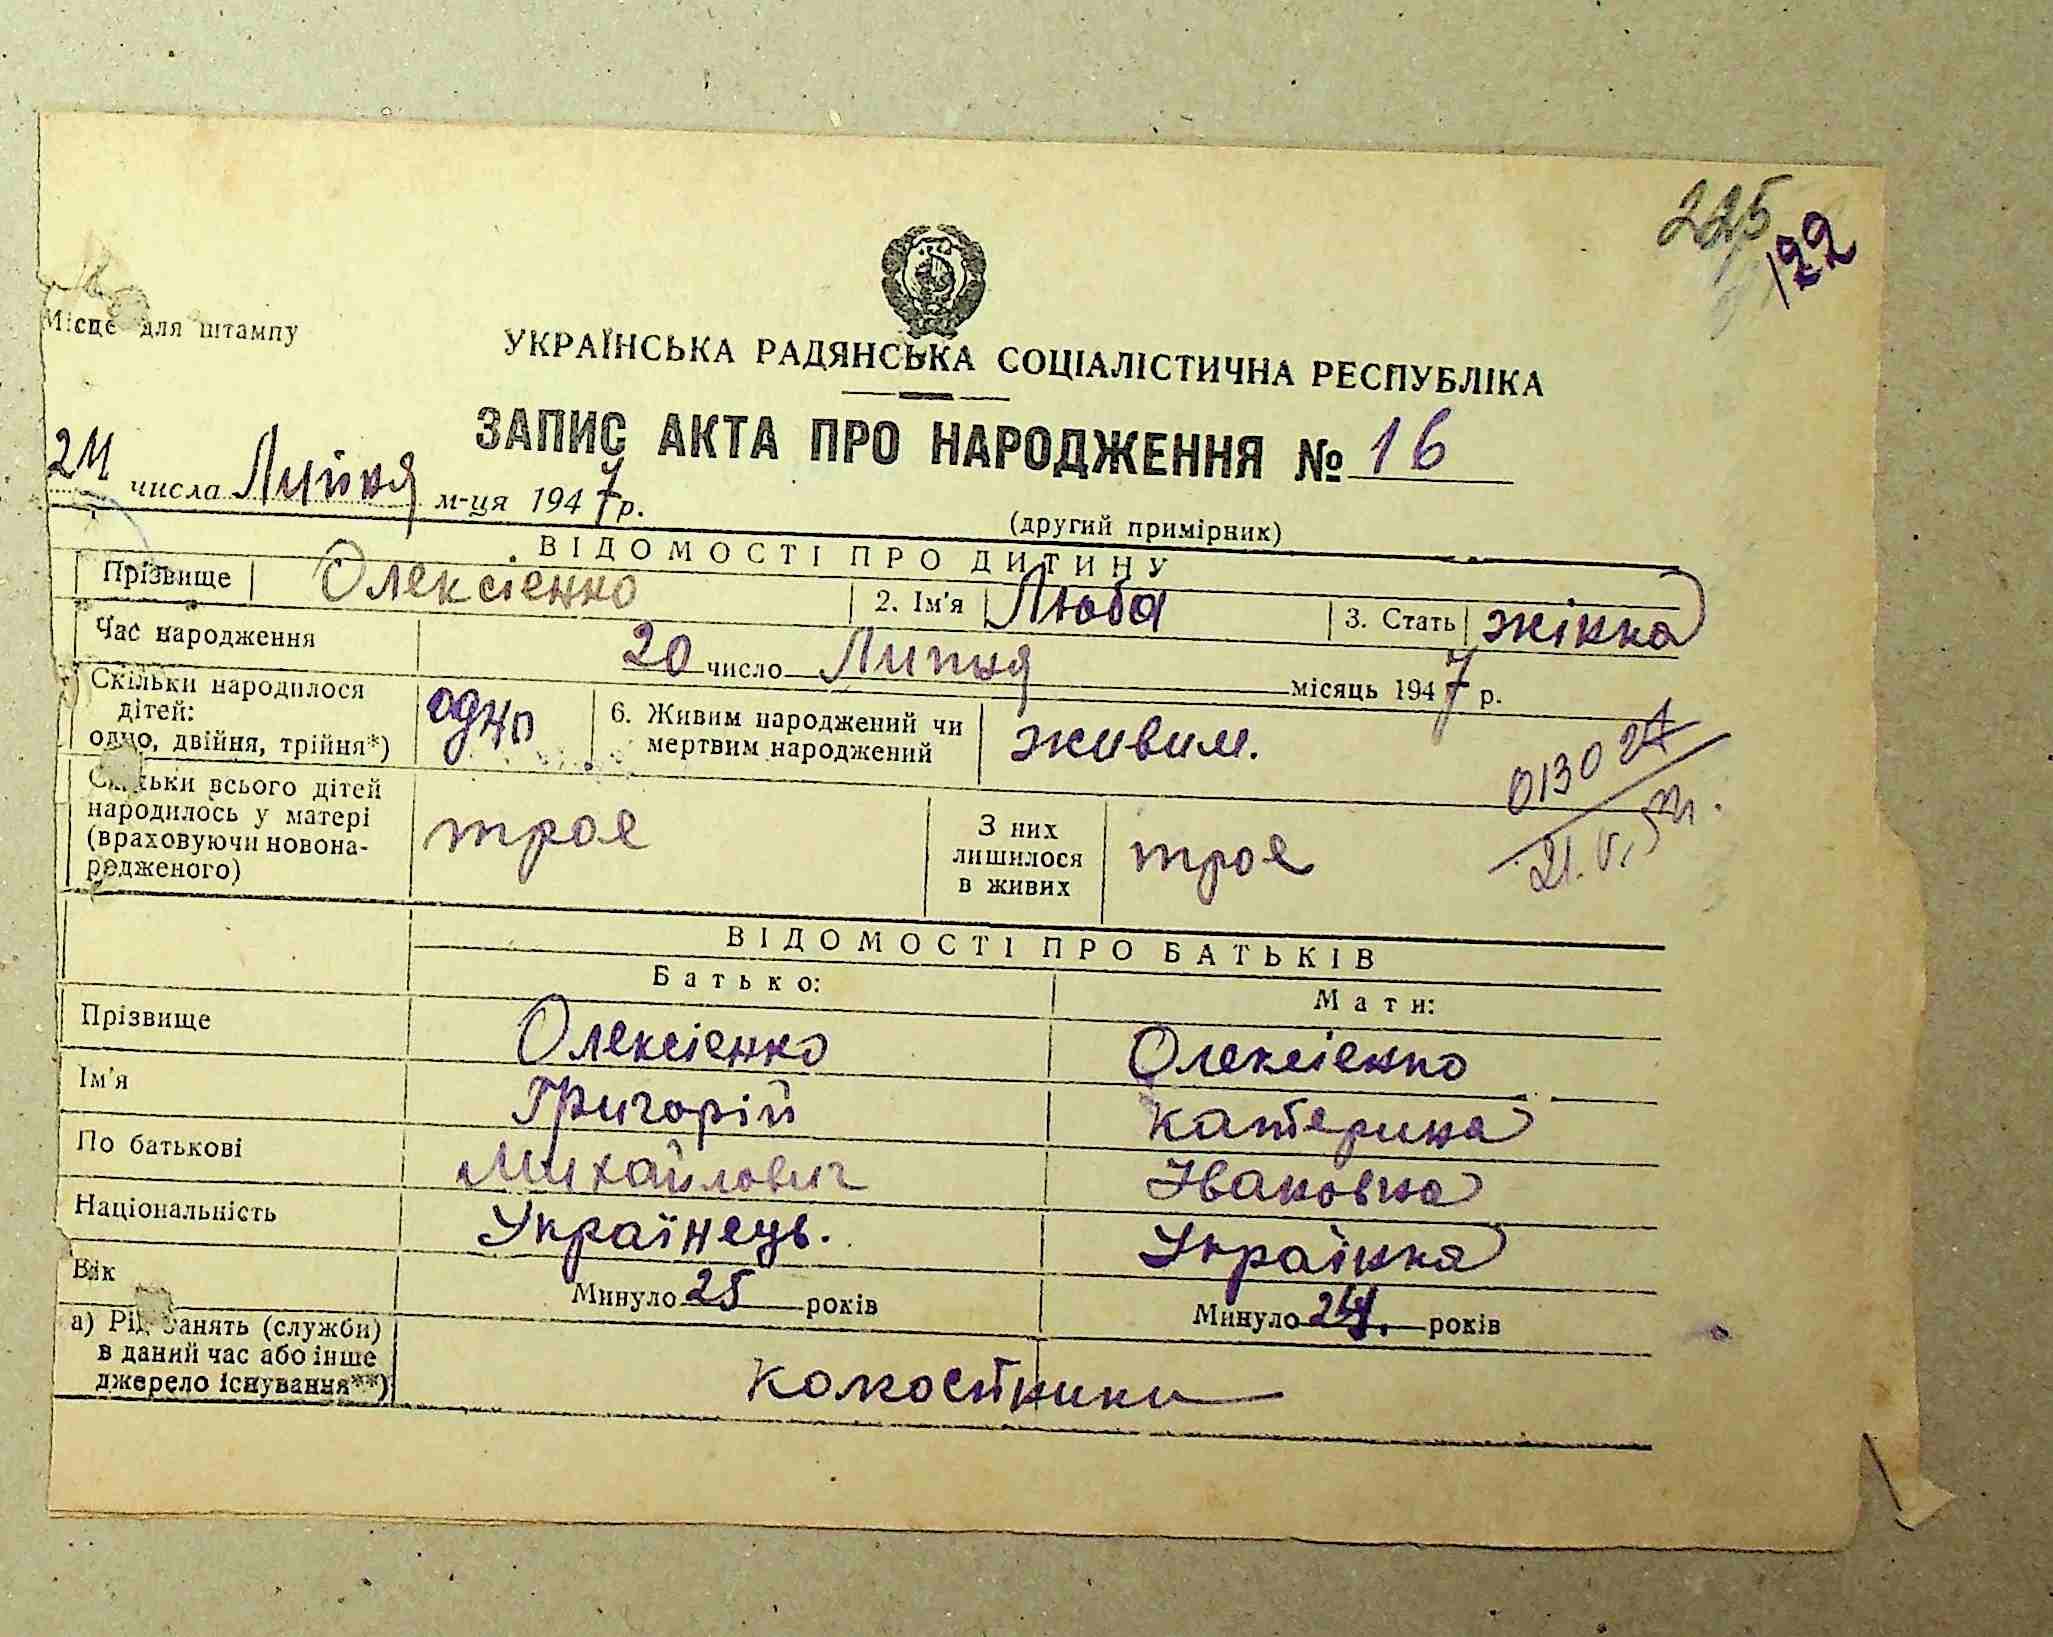 225
122
Місце для штампу
УКРАЇНСЬКА РАДЯНСЬКА СОЦІАЛІСТИЧНА РЕСПУБЛІКА
ЗАПИС АКТА ПРО НАРОДЖЕННЯ № 16
24 числа Липня м-ця 1947 р.
(другий примірник)
ВІДОМОСТІ ПРО ДИТИНУ
Прізвище Олексієнко 2. Ім'я Люба 3. Стать жінка
Час народження 20 число Липня місяць 1947 р.
Скільки народилося дітей: одно, двійня, трійня*) одно 6. Живим народжений чи мертвим народжений живим.
013024
21.V.
Скільки всього дітей народилось у матері (враховуючи новона-родженого) троє З них лишилося в живих троє
ВІДОМОСТІ ПРО БАТЬКІВ
Батько: Мати:
Прізвище Олексієнко Олексієнко
Ім'я Григорій Катерина
По батькові Михайлович Івановна
Національність Українець. Українка
Вік Минуло 25 років Минуло 24. років
а) Рід занять (служби) в даний час або інше джерело існування**) колгостники